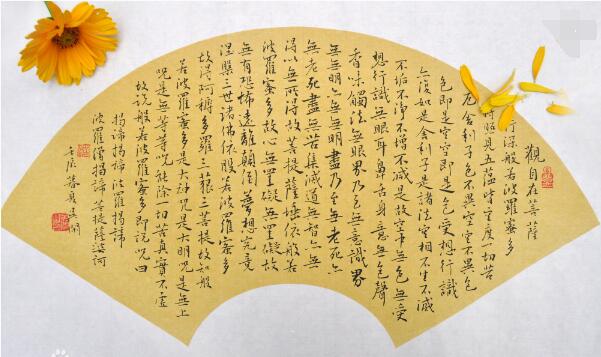 觀自在菩薩
行深般若波羅蜜多
時照見五蘊皆空度一切苦
厄舍利子色不異空空不異色
色即是空空即是色受想行識
亦復如是舍利子是諸法空相不生不滅
不垢不淨不增不減是故空中無色無受
想行識無眼耳鼻舌身意無色聲
香味觸法無眼界乃至無意識界
無無明亦無無明盡乃至無老死亦
無老死盡無苦集滅道無智亦無
得以無所得故菩提薩埵依般若
波羅蜜多故心無罣礙無罣礙故
無有恐怖遠離顛倒夢想究竟
涅槃三世諸佛依般若波羅蜜多
故得阿耨多羅三藐三菩提故知般
若波羅蜜多是大神咒是大明咒是無上
咒是無等等咒能除一切苦真實不虛
故說般若波羅蜜多即說咒曰
揭諦揭諦波羅揭諦
波羅僧揭諦菩提薩婆訶